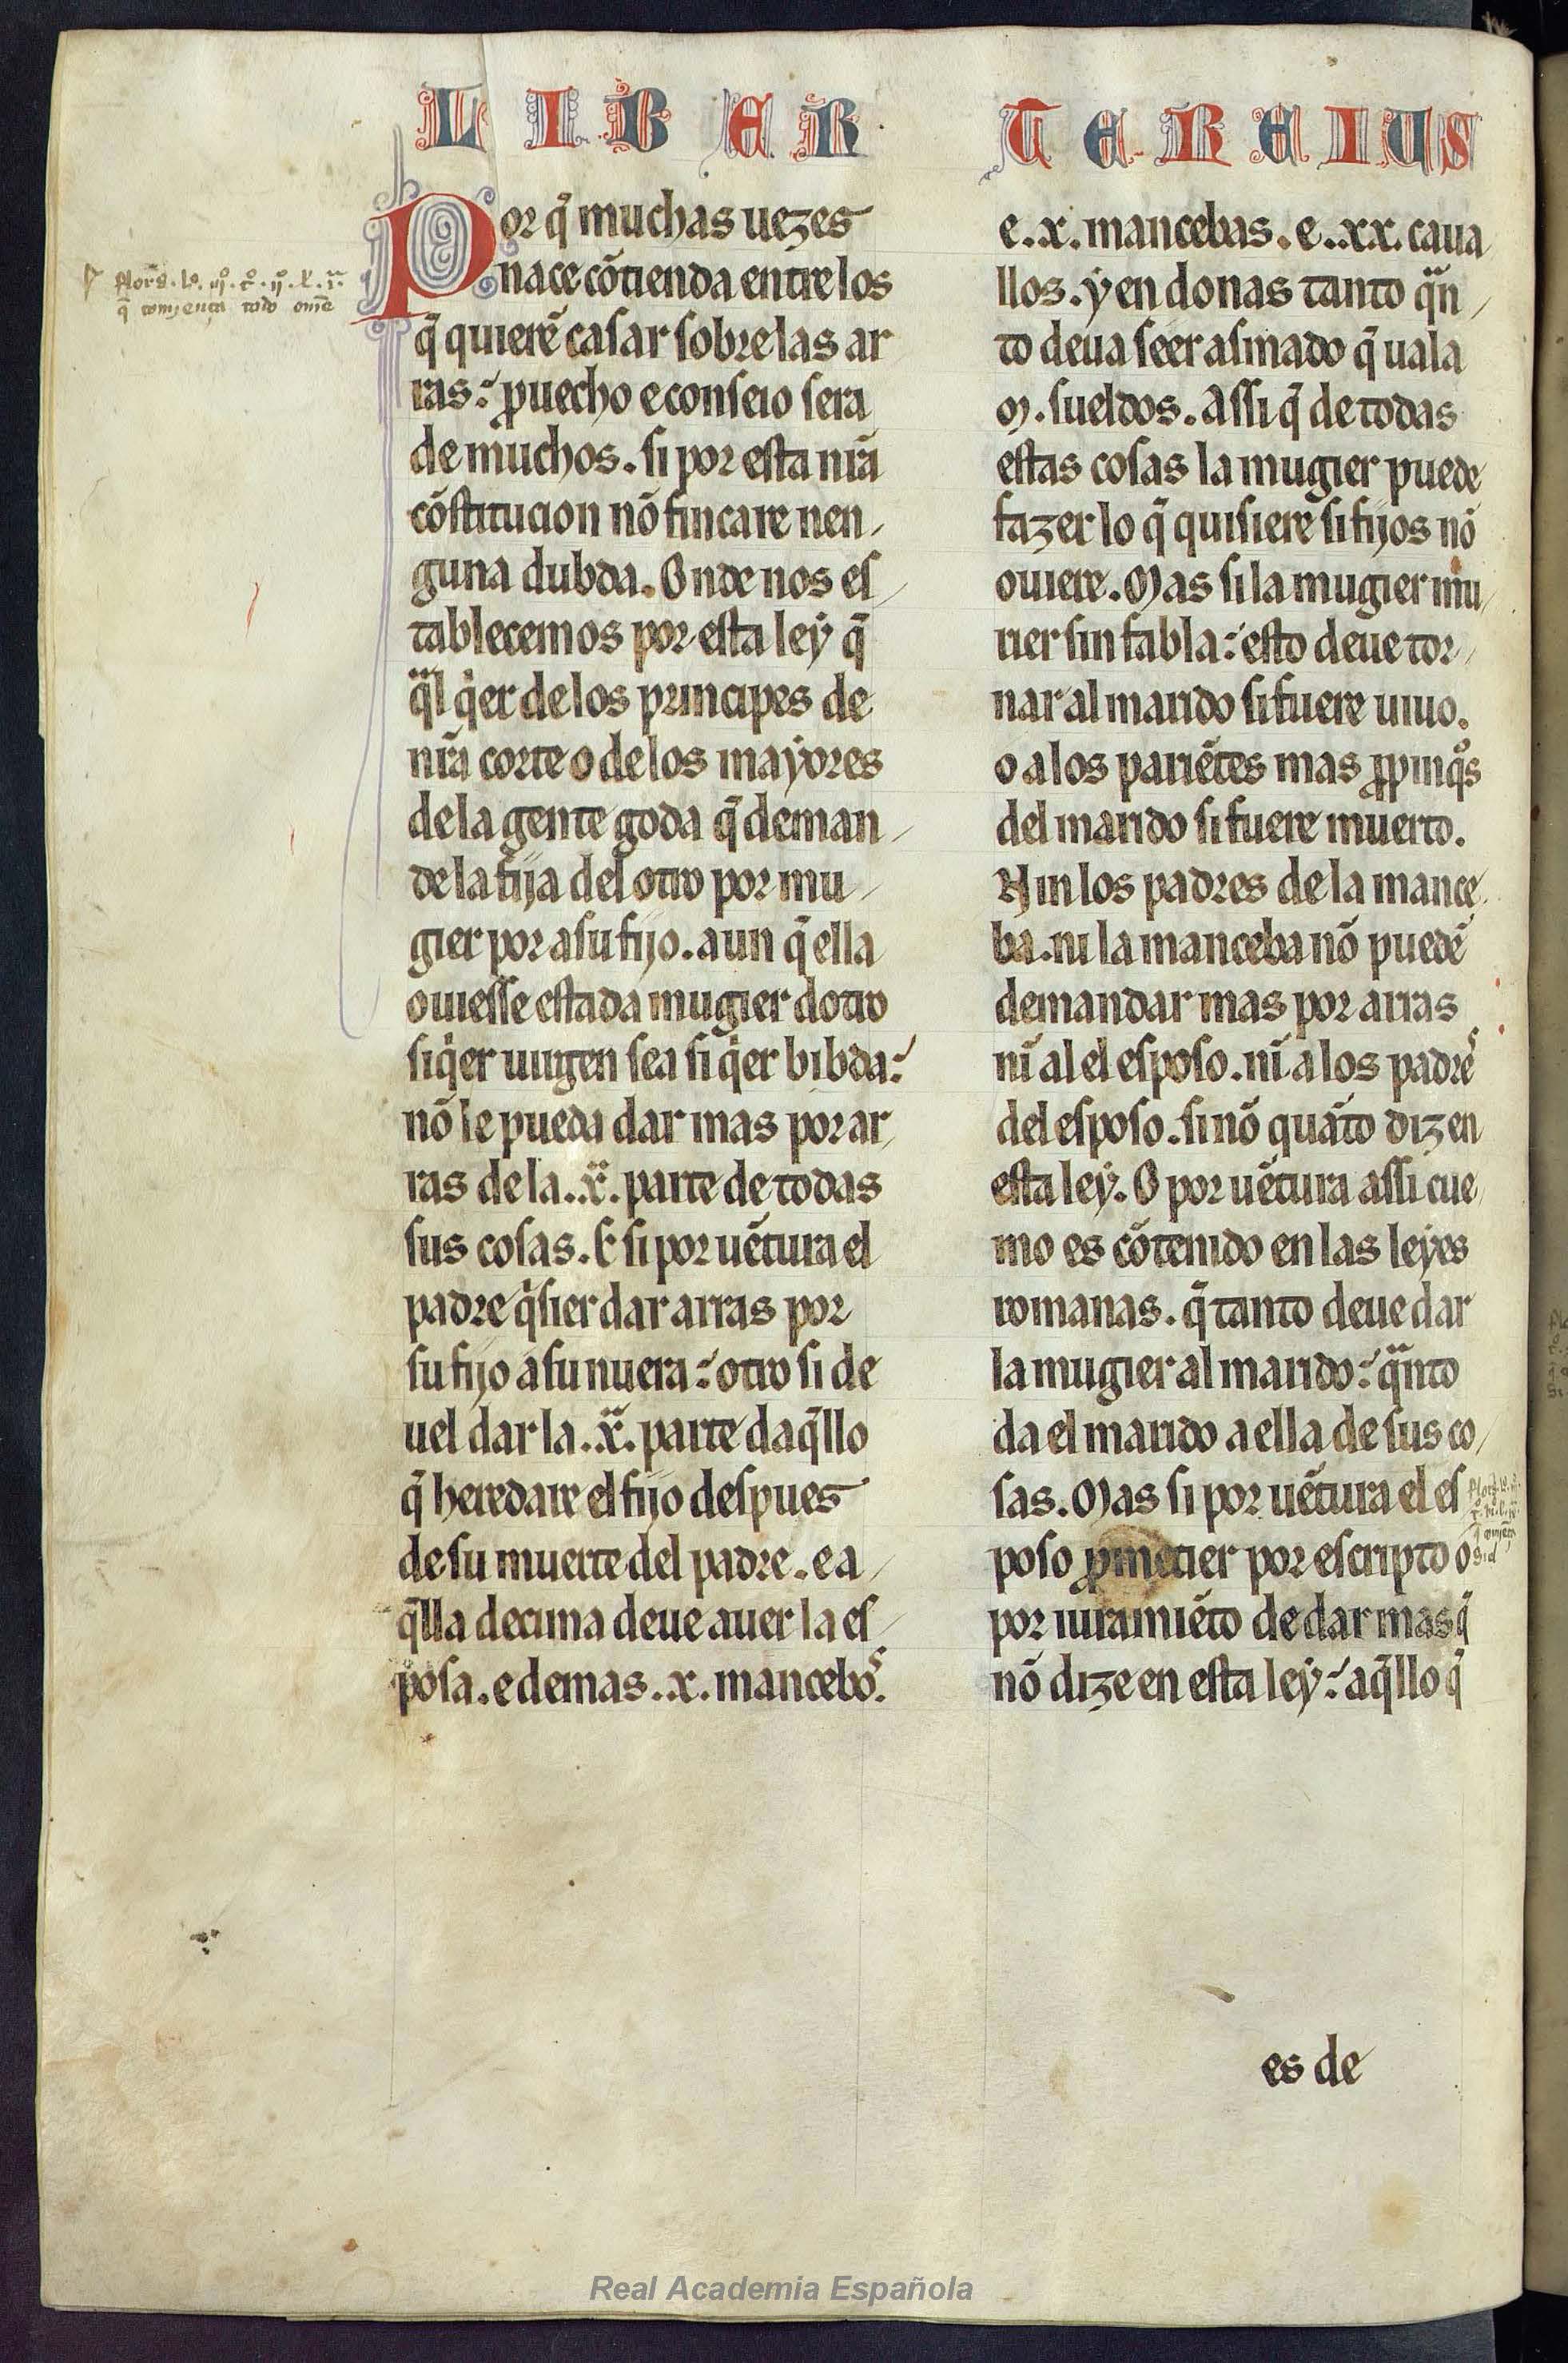 LIBER TERCIUS
Por q̃ muchas uezes
nace cõtienda entre los
q̃ quierẽ casar sobre las ar
ras: ꝓuecho e conseio sera
de muchos. si por esta nr̃a
cõstitucion nõ fincare nen
guna dubda. Onde nos es
tablecemos por esta leẏ q̃
qͣl qͥer de los principes de
nr̃a corte o de los maẏores
de la gente goda q̃ deman
de la fija del otro por mu
gier por a su fijo. aun q̃ ella
ouiesse estada mugier dotro
siqͥer uirgen sea siqͥer bibda:
nõ le pueda dar mas por ar
ras de la .xͣ. parte de todas
sus cosas. E si por uẽtura el
padre qͥsier dar arras por
su fijo a su nuera: otro si de
uel dar la .xͣ. parte daq̃llo
q̃ heredare el fijo despues
de su muerte del padre. e a
q̃lla decima deue auer la es
posa. e demas .x. mancebos.
e .x. mancebas. e .xx. caua
llos. ẏ en donas tanto qͣn
to deua seer asmado q̃ uala
M. sueldos. Assi q̃ de todas
estas cosas la mugier puede
fazer lo q̃ quisiere si fijos nõ
ouiere. Mas si la mugier mu
rier sin fabla: esto deue tor
nar al marido si fuere uiuo.
o a los pariẽtes mas ꝓpinqͦs
del marido si fuere muerto.
Nin los padres de la mance
ba. ni la manceba nõ puedẽ
demandar mas por arras
nĩ al el esposo. nĩ a los padres
del esposo. si nõ quãto diz en
esta leẏ. O por uẽtura assi cue
mo es cõtenido en las leẏes
romanas. q̃ tanto deue dar
la mugier al marido: qͣnto
da el marido a ella de sus co
sas. Mas si por uẽtura el es
poso ꝓmetier por escripto o
por iuramiẽto de dar mas q̃
nõ dize en esta leẏ: aq̃llo q̃
es de
q̃ comjença todo ome
Real Academia Española